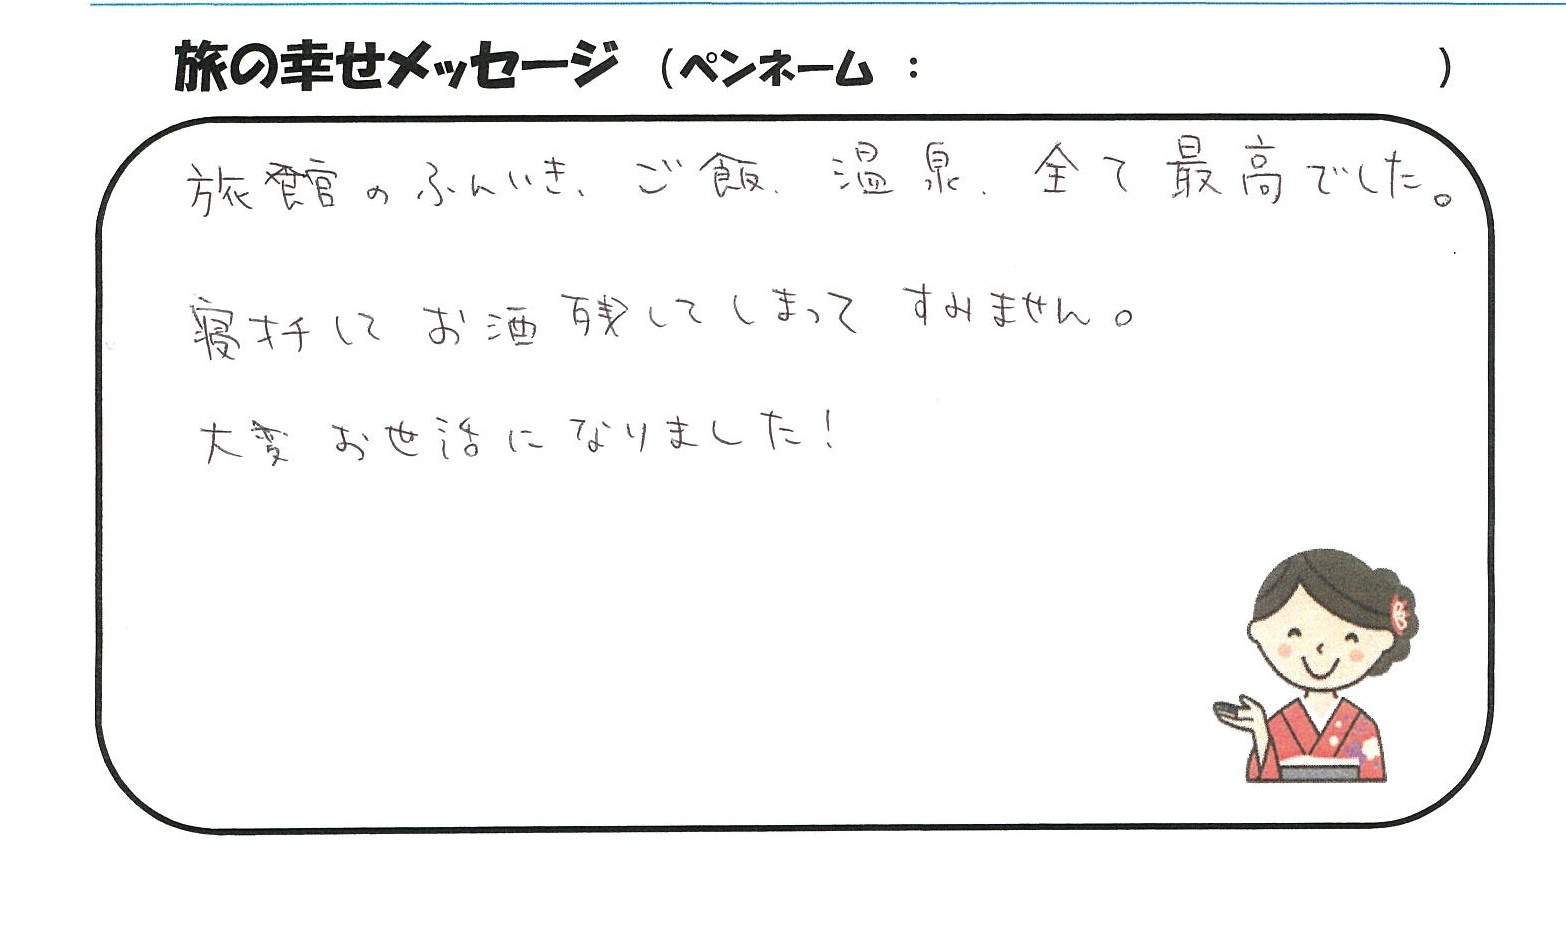 旅の幸せメッセージ（ペンネーム：　　　）
旅館のふんいき、ご飯、温泉、全て最高でした。
寝オチしてお酒残してしまってすみません。
大変お世話になりました！